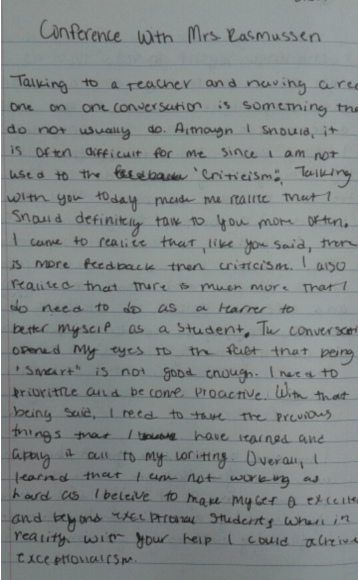 Conference with Mrs. Rasmussen
Talking to a teacher and having a real
one on one conversation is something tha
do not usually do. Although I should, it
is often difficult for me since I am not
used to the feedback "criticism". Talking
with you today made me realize that I
should definitely talk to you more often.
I came to realize that, like you said, there
is more feedback then criticism. I also
realized that there is much more that I
do need to do as a learner to
better myself as a student. The conversat
opened my eyes to the fact that being
"smart" is not good enough. I need to
prioritize and become proactive. With that
being said, I need to take the previous
things that I have learned and
apply it all to my writing. Overall, I
learned that I am not working as
hard as I beleive to make myself a excelle
and beyond exceptional student, when in
reality, with your help I could achieve
exceptionalism.